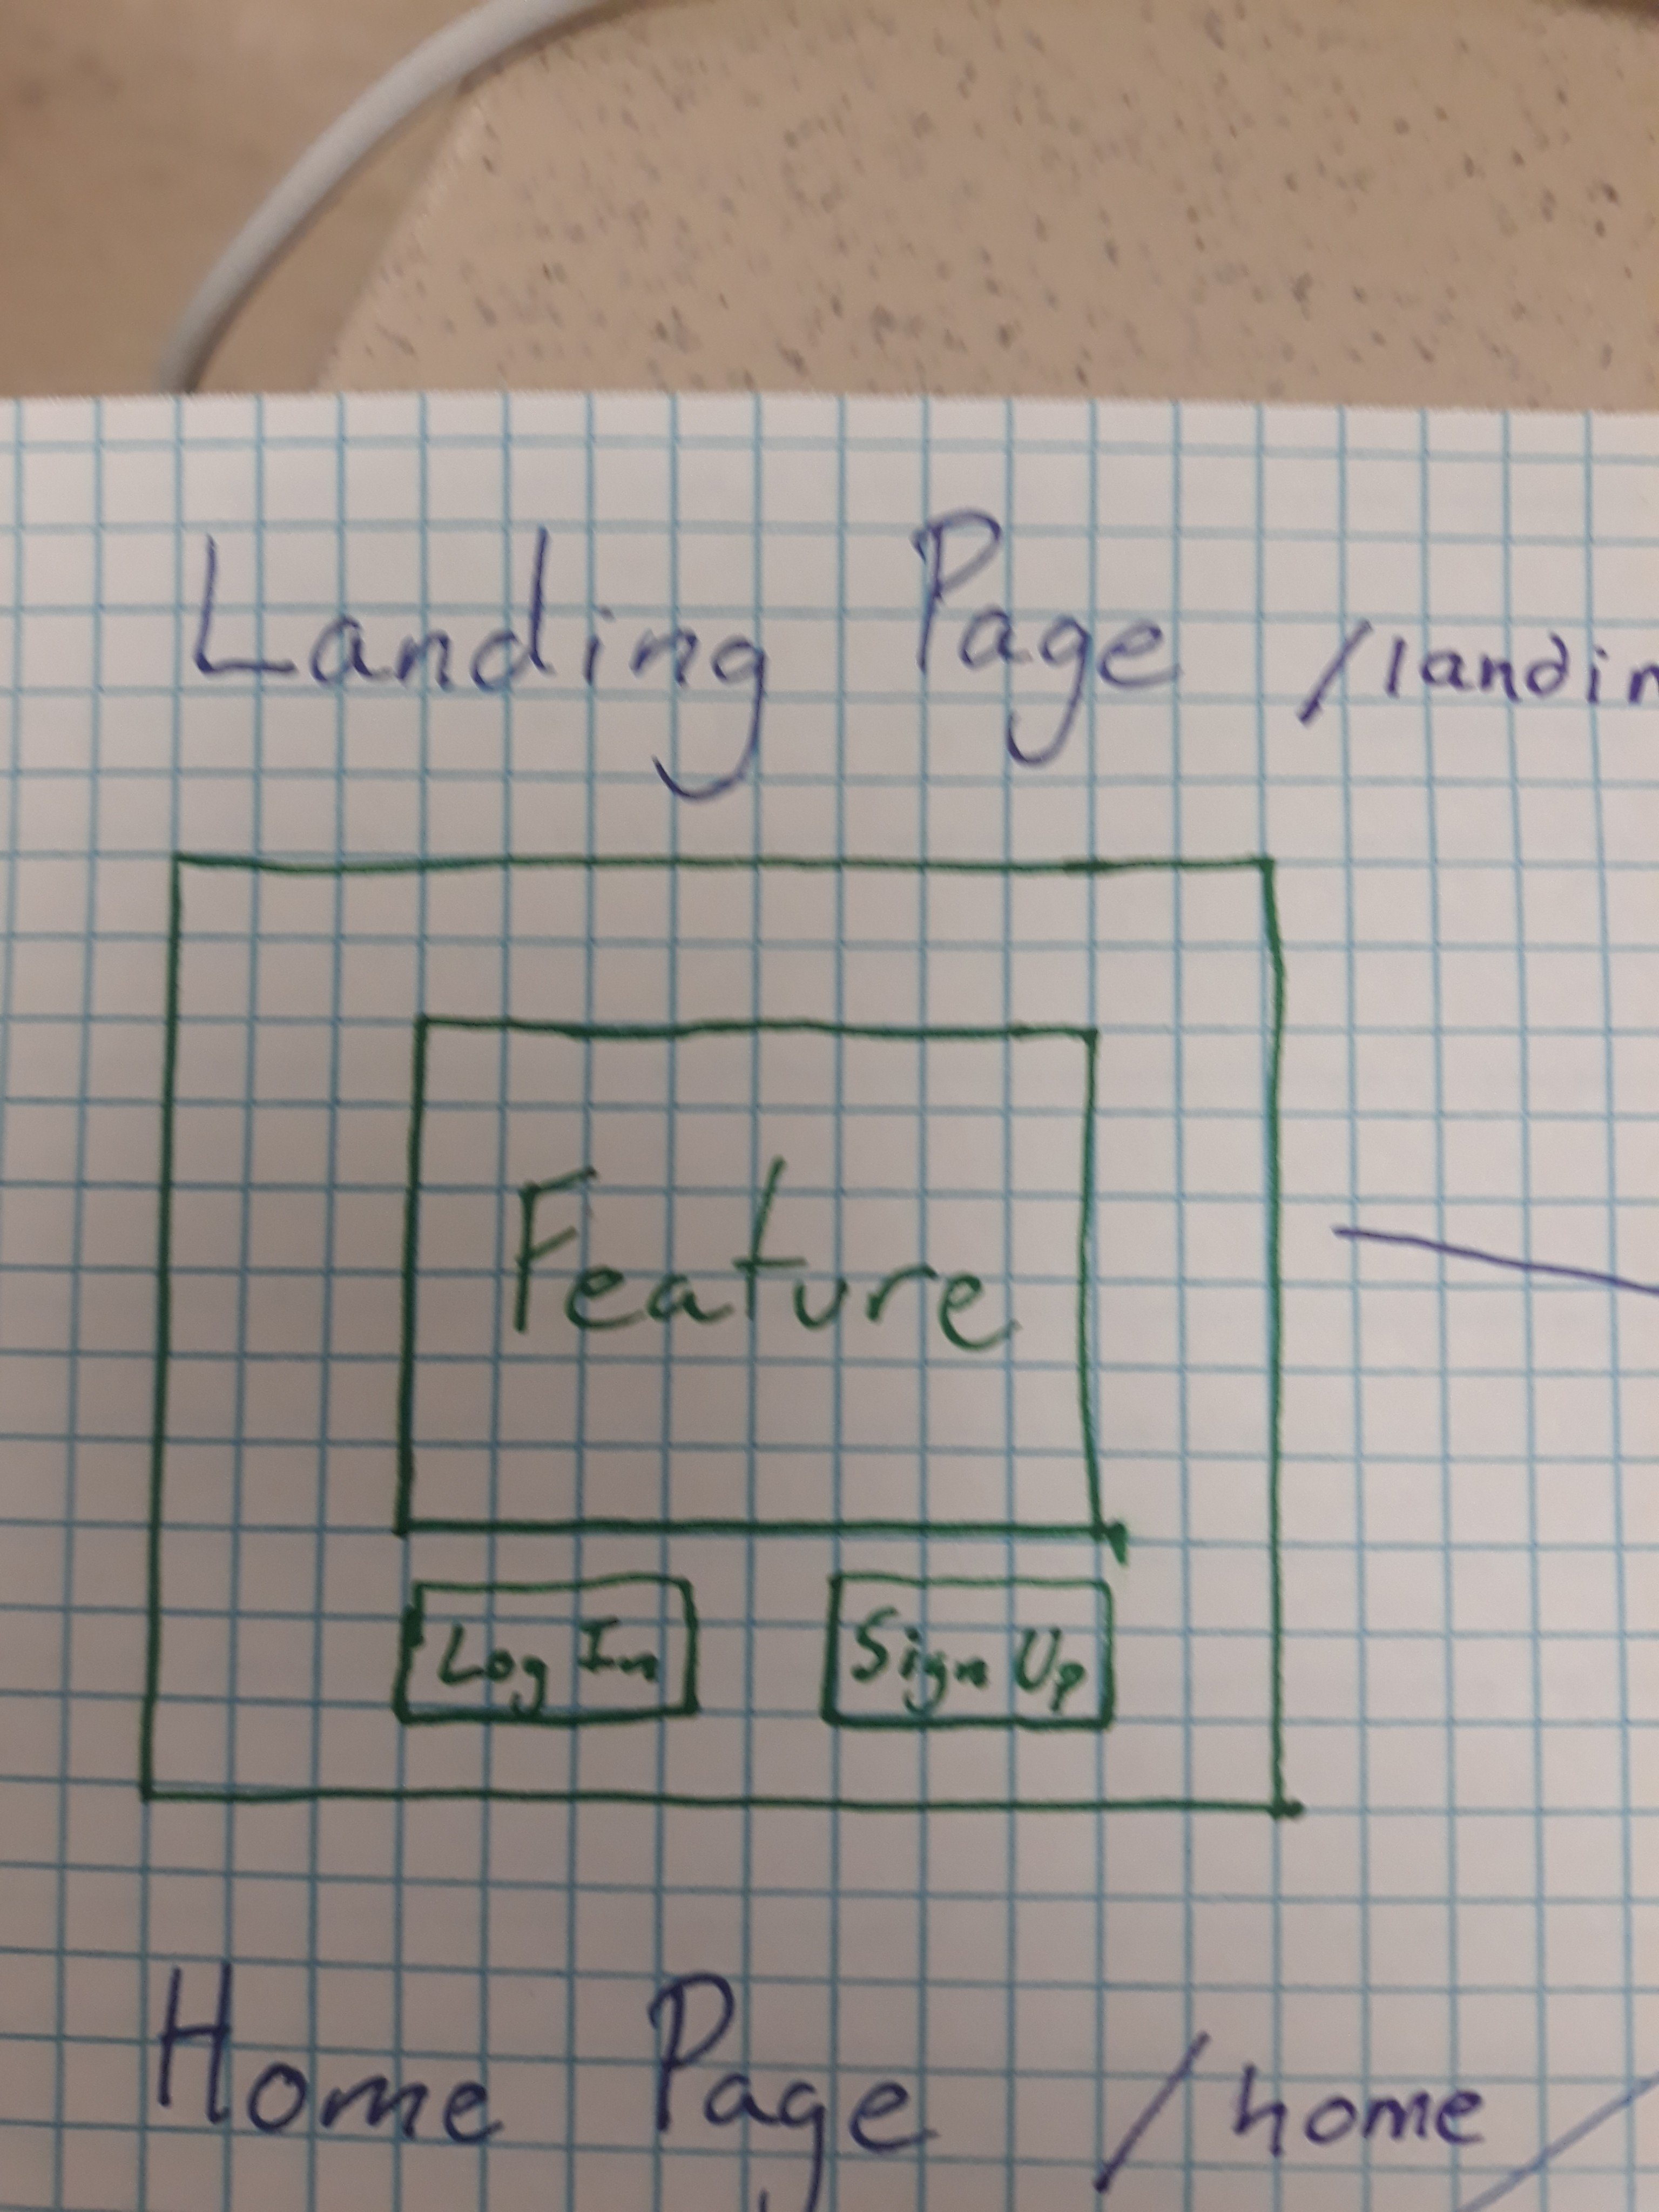 Landing Page /landin
Feature
Log In Sign Up
Home Page /home